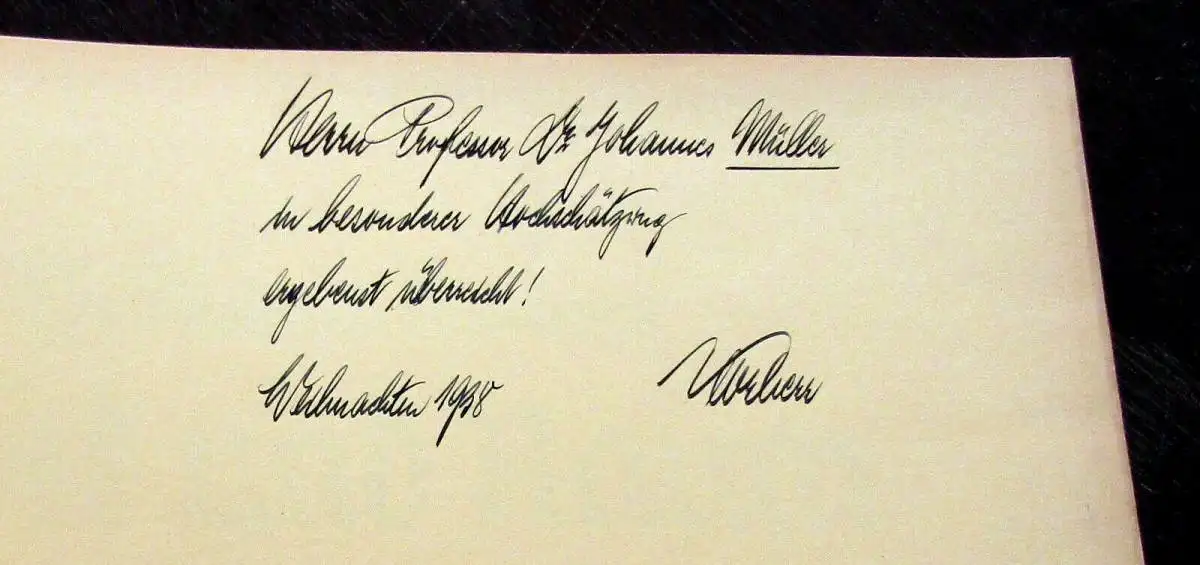 Herrn Professor Dr. Johannes Müller
in besonderer Hochschätzung
ergebenst überreicht!
Weihnachten 1938 Vorherr